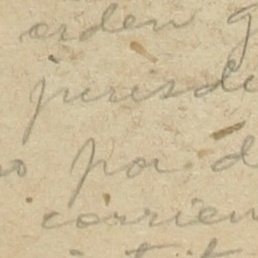 orden g
jurisdi
o por d
corrien